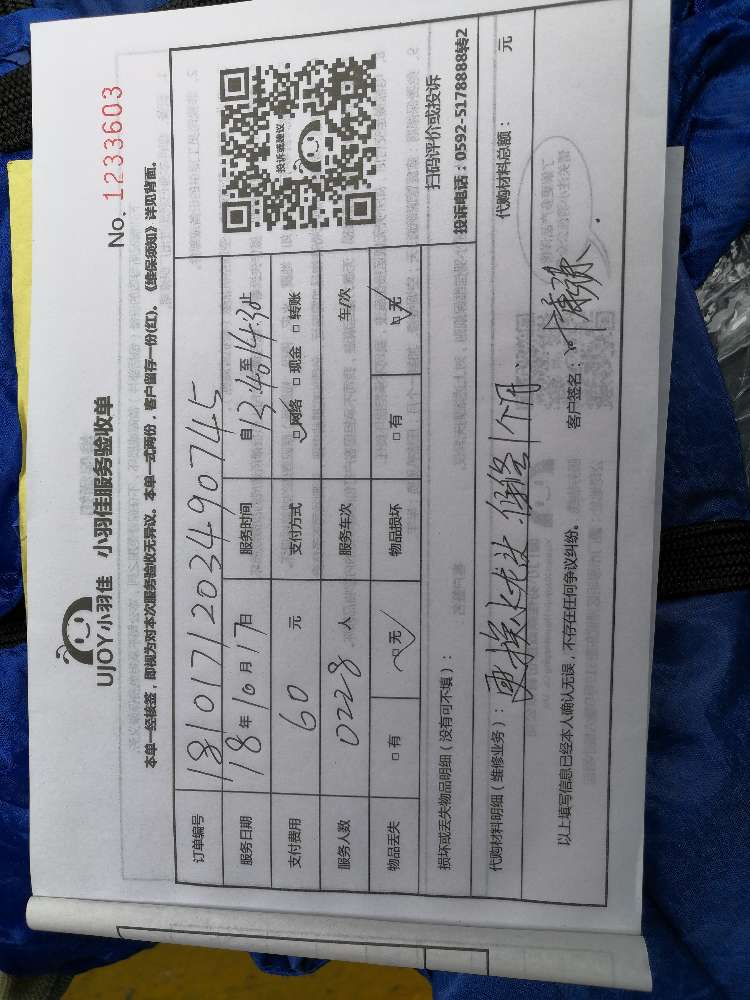 No. 1233603
UJOY小羽佳 小羽佳服务验收单
本单一经接签，即视为对本次服务验收无异议。本单一式两份，客户留存一份(红)。《维保须知》详见背面。
订单编号 181017120349074​5
服务日期 18年10月17日 服务时间 自13:40至14:30止
支付费用 60 元 支付方式 □网络 □现金 □转账
服务人数 0228 人 服务车次 车/次
物品丢失 □有 □无 物品损坏 □有 □无
投诉或建议
扫码评价或投诉
投诉电话：0592-5178888转2
损坏或丢失物品明细（没有可不填）：
代购材料明细（维修业务）：更换水龙头.保修1个月. 代购材料总额： 元
以上填写信息已经本人确认无误，不存在任何争议纠纷。 客户签名：